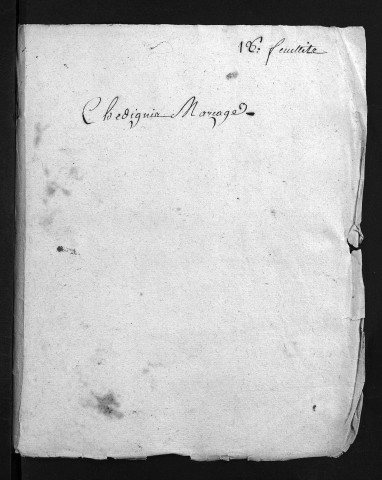 18: feuillite
Chedignia Mariage